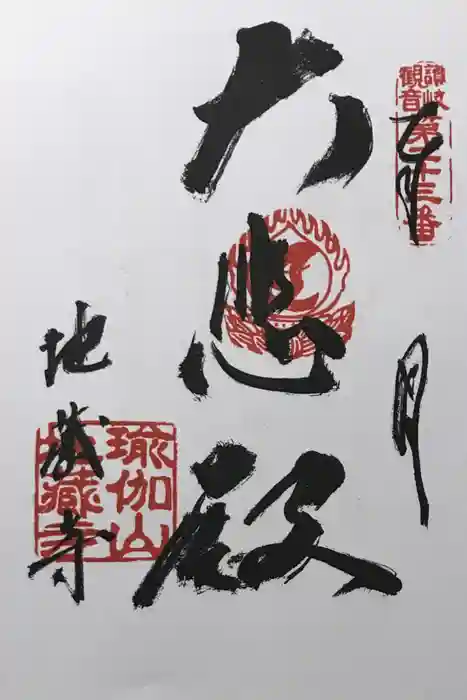 讃岐
観音
第二十三番
奉拝
月
大悲殿
地蔵寺
瑜伽山
地蔵寺